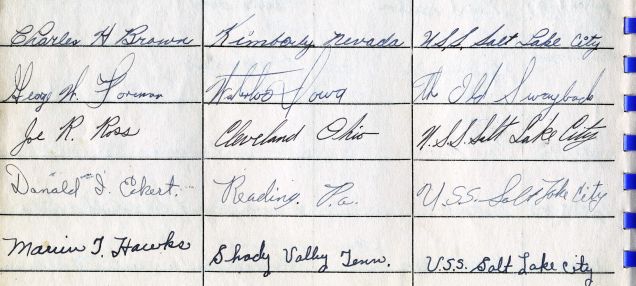 Charles H Brown Kimberly Nevada U.S.S. Salt Lake City
George W. Forman Waterloo Iowa The Old Swayback
Joe R. Ross Cleveland Ohio U.S.S. Salt Lake City
Donald J. Eckert. Reading. Pa. U.S.S. Salt Lake City
Marion T. Hawks Shady Valley Tenn. U.S.S. Salt Lake City